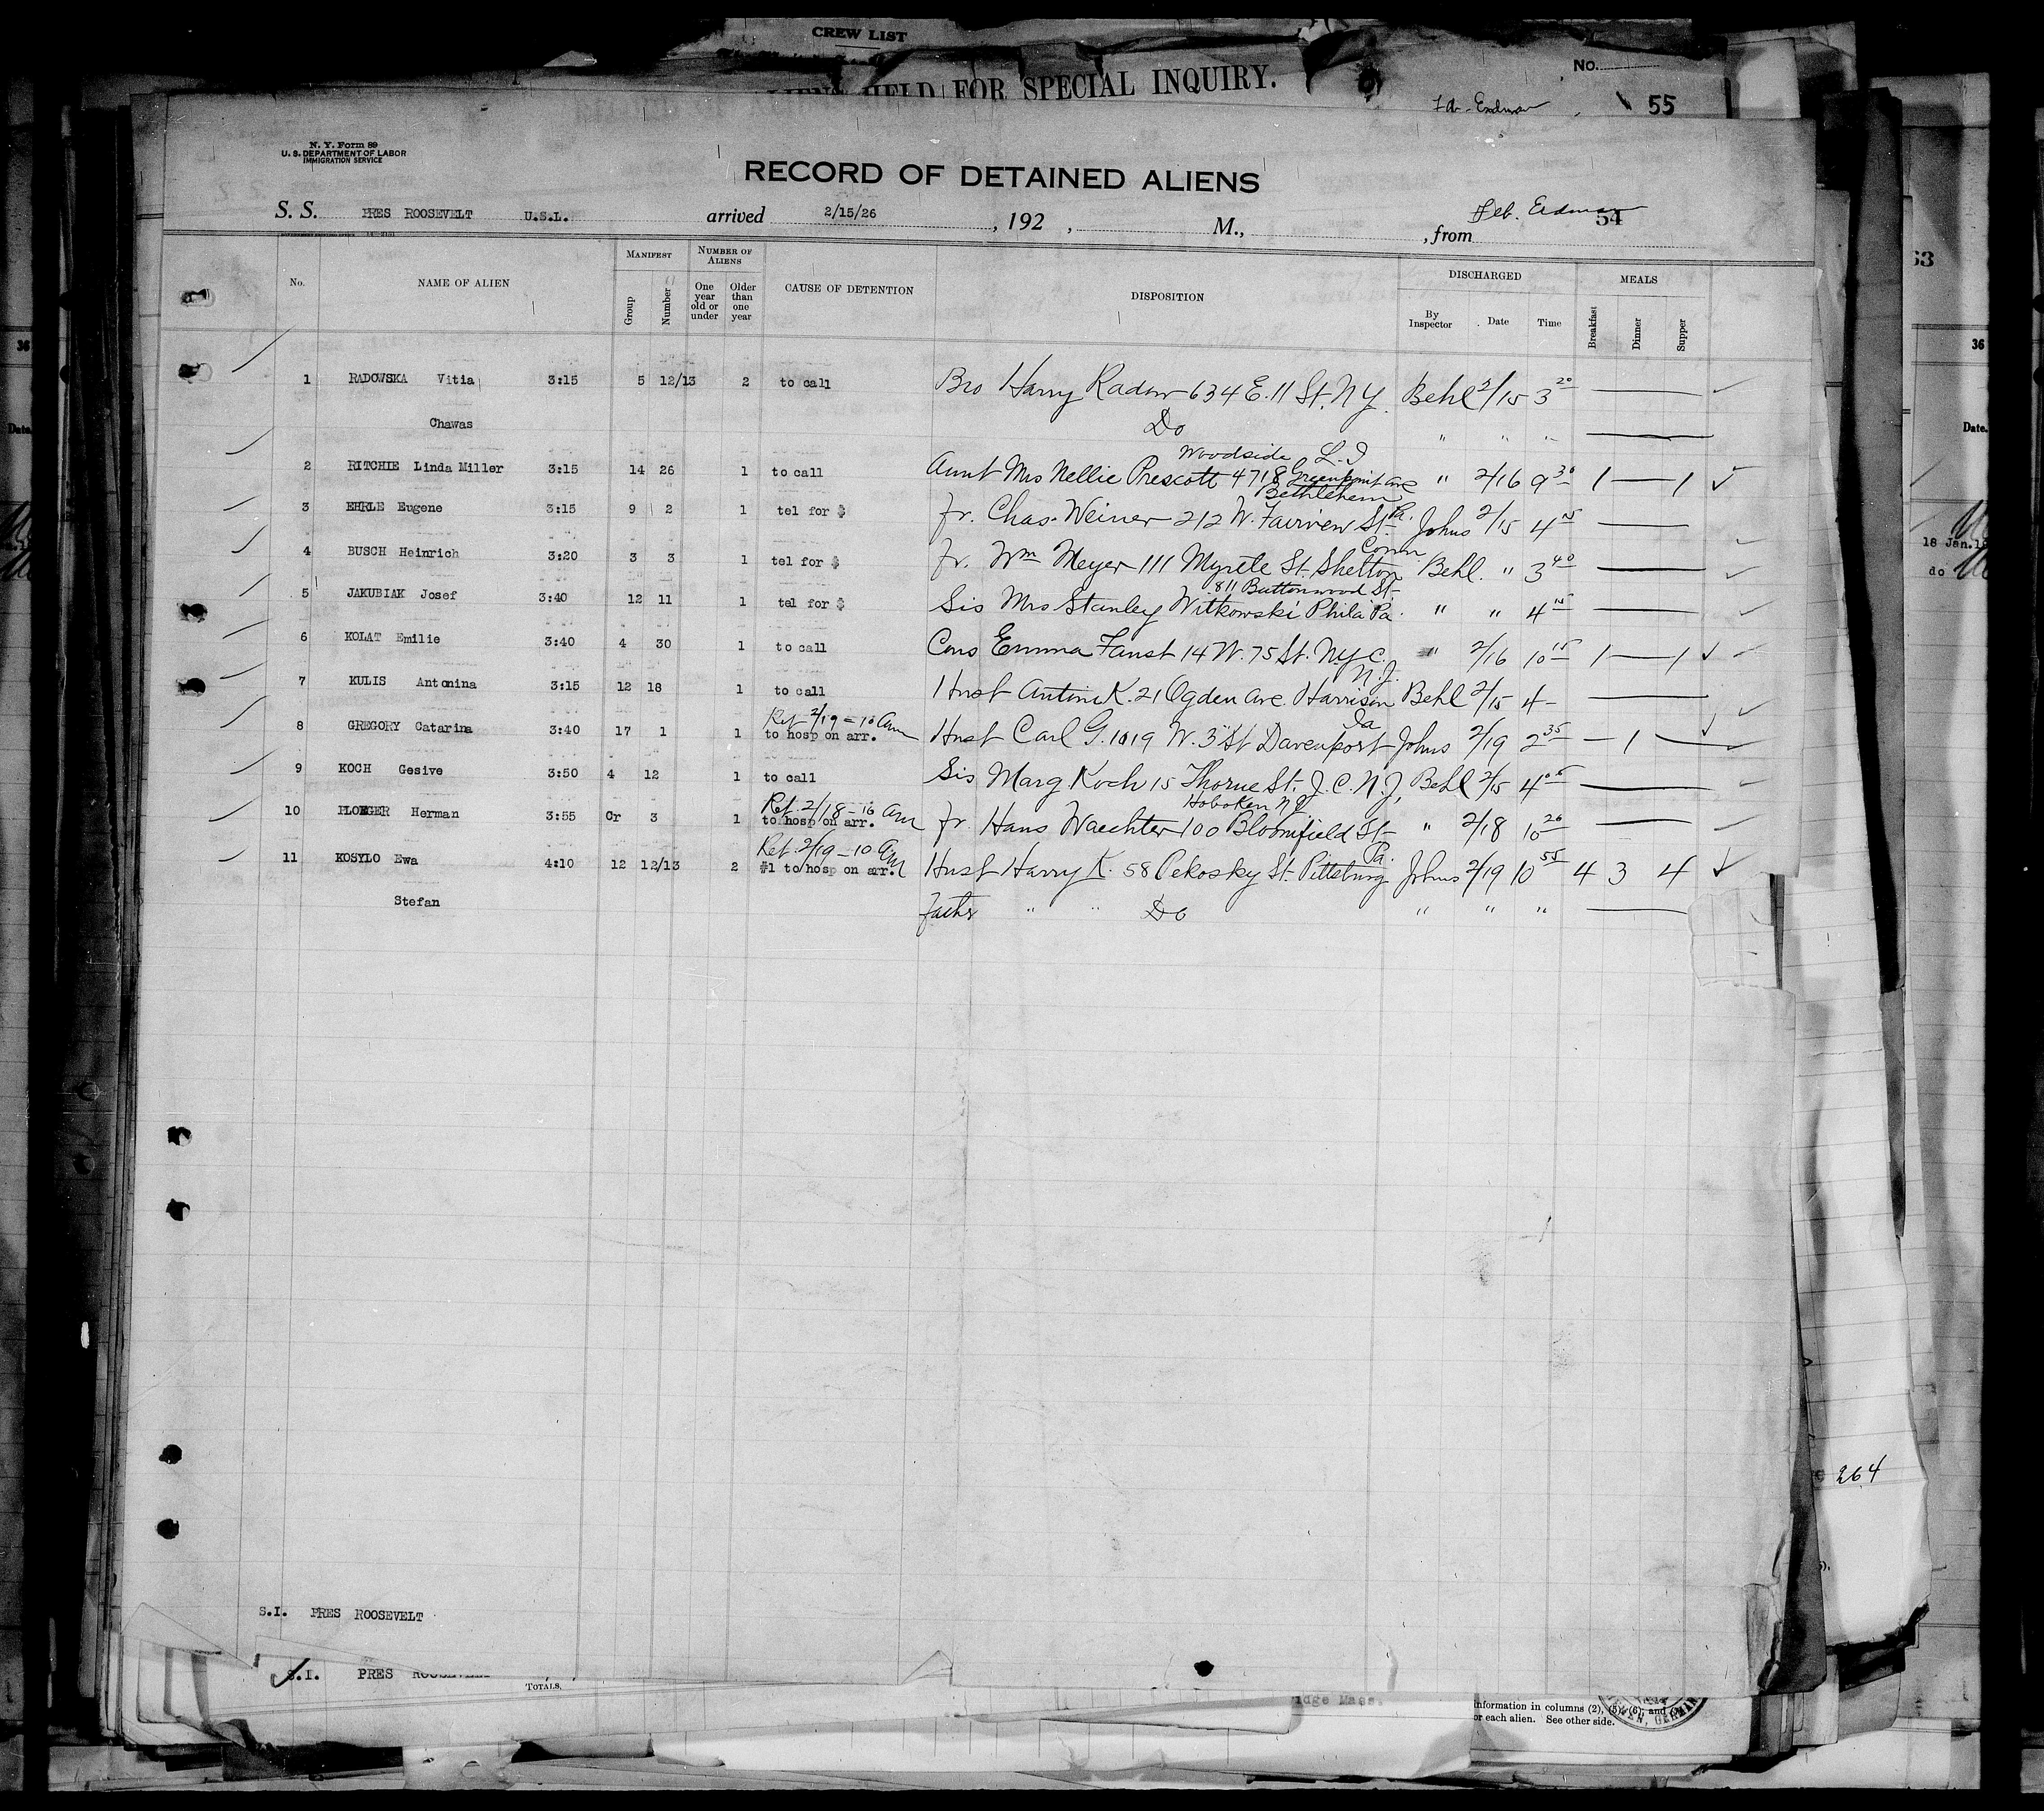 CREW LIST
HELD FOR SPECIAL INQUIRY.
No.
55
N. Y. Form 89
U. S. DEPARTMENT OF LABOR
IMMIGRATION SERVICE
RECORD OF DETAINED ALIENS
S. S. PRES ROOSEVELT U.S.L. arrived 2/15/26, 192 , M., , from 54
No. NAME OF ALIEN MANIFEST Group Number NUMBER OF ALIENS One year old or under Older than one year CAUSE OF DETENTION DISPOSITION DISCHARGED By Inspector Date Time MEALS Breakfast Dinner Supper
1 RADOWSKA Vitia 3:15 5 12/13 2 to call Bro Harry Radow 634 E. 11 St. N.Y. Behl 2/15 3 20
Chawas Do " " "
Woodside L.I
2 RITCHIE Linda Miller 3:15 14 26 1 to call Aunt Mrs Nellie Prescott 4718 Greenpoint ave " 2/16 9 30 1 — 1
Bethlehem
3 EHRLE Eugene 3:15 9 2 1 tel for $ fr. Chas. Weiner 212 W. Fairview St. Pa. Johns 2/15 4 15
Conn
4 BUSCH Heinrich 3:20 3 3 1 tel for $ fr. Wm Meyer 111 Myrtle St. Shelton Behl. " 3 40
811 Buttonwood St-
5 JAKUBIAK Josef 3:40 12 11 1 tel for $ Sis Mrs Stanley Witkowski Phila Pa. " " 4 15
6 KOLAT Emilie 3:40 4 30 1 to call Cous Emma Faust 14 W. 75 St. N.Y.C. " 2/16 10 15 1 — 1
N.J.
7 KULIS Antonina 3:15 12 18 1 to call Husb Antoni K. 21 Ogden Ave. Harrison Behl 2/15 4 -
Ret 2/19 = 10 am Ia
8 GREGORY Catarina 3:40 17 1 1 to hosp on arr. Husb Carl G. 1019 W. 3" St Davenport Johns 2/19 2 35 — 1 —
9 KOCH Gesive 3:50 4 12 1 to call Sis Marg Koch 15 Thorne St. J.C. N.J, Behl 2/15 4 05
Ret. 2/18 - 10 am Hoboken NJ
10 PLOEGER Herman 3:55 Cr 3 1 to hosp on arr. fr. Hans Waechter 100 Bloomfield St- " 2/18 10 20
Ret. 2/19 - 10 am Pa.
11 KOSYLO Ewa 4:10 12 12/13 2 #1 to hosp on arr. Husb Harry K. 58 Pekosky St. Pittsburg Johns 2/19 10 55 4 3 4
Stefan Fathr " " Do " " "
S.I. PRES ROOSEVELT
S.I. PRES
TOTALS,
idge Mass.
information in columns (2), (5), (6), and
or each alien. See other side.
36
Date.
53
36
Date.
18 Jan.
do
264